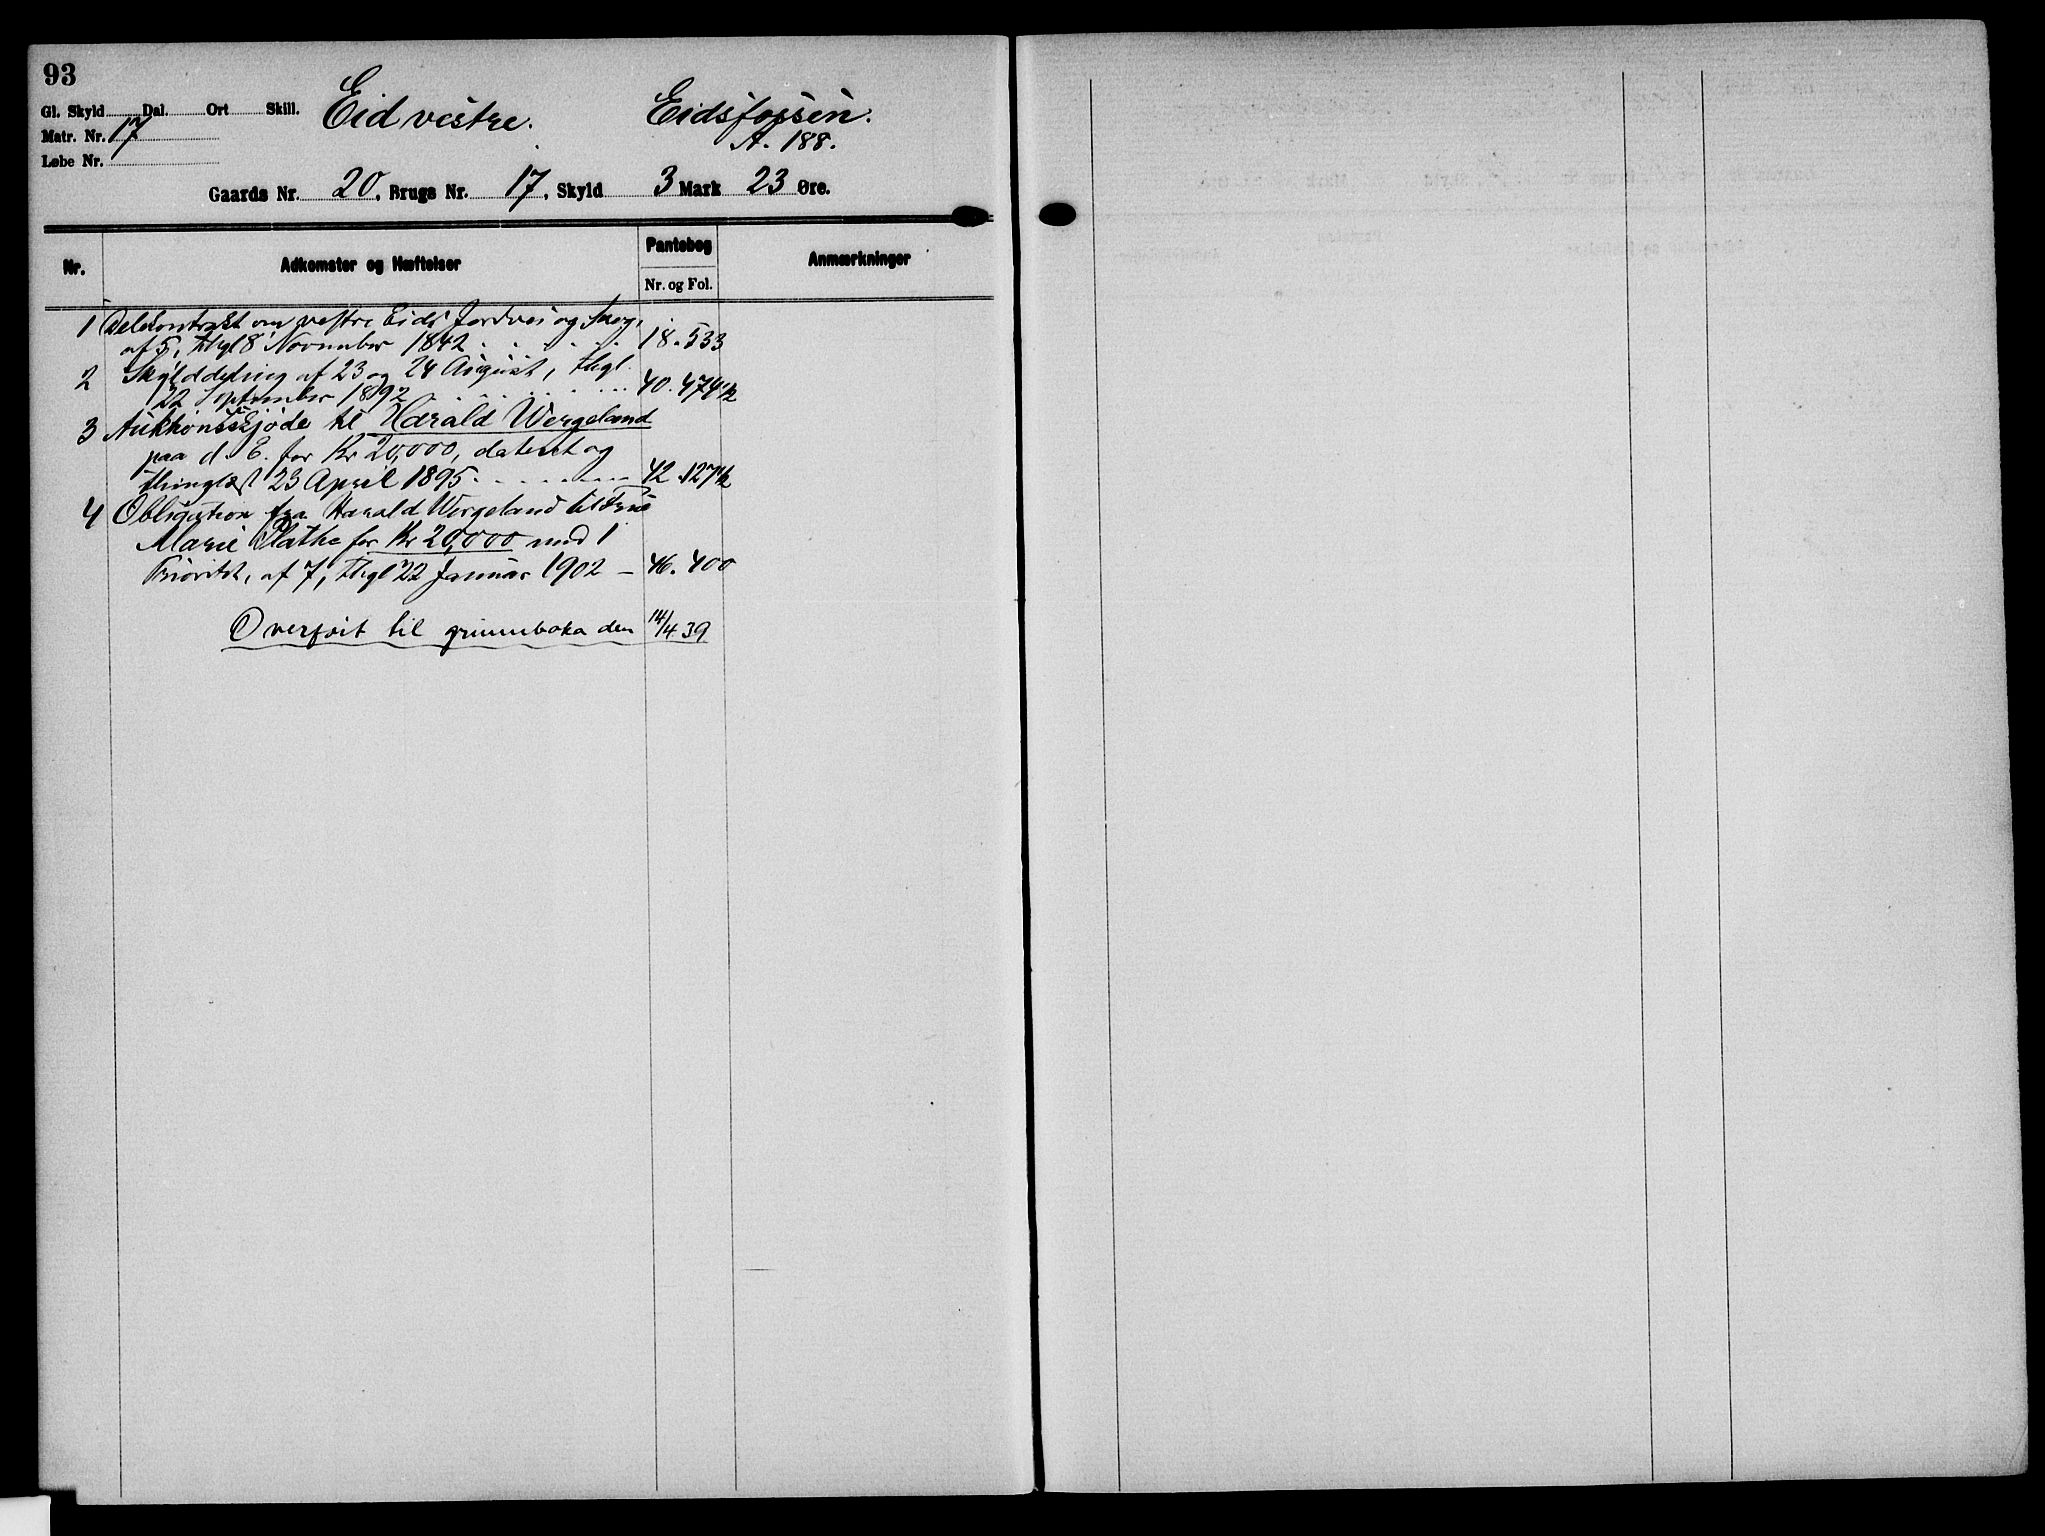 93
Gl. Skyld Dal. Ort Skill.
Matr. Nr. 17
Løbe Nr.
Eid vestre. Eidsfossen.
A. 188.
Gaards Nr. 20, Brugs Nr. 17, Skyld 3 Mark 23 Øre.
Nr. Adkomster og Hæftelser Pantebog Anmærkninger
Nr. og Fol.
1 Delekontrakt om vestre Eids Jordvei og Skog,
af 5, thgl 8 November 1842 18. 533
2 Skylddeling af 23 og 24 August, thgl.
22 September 1892 40. 474 1/2
3 Auktionsskjøde til Harald Wergeland
paa d. E. for Kr 20,000, dateret og
thinglæst 23 April 1895 42. 127 1/2
4 Obligation fra Harald Wergeland til Frue
Marie Plathe for Kr 20,000 med 1
Prioritet, af 7, thgl 22 Januar 1902 – 46. 400
Overført til grunnboka den 14/4 39